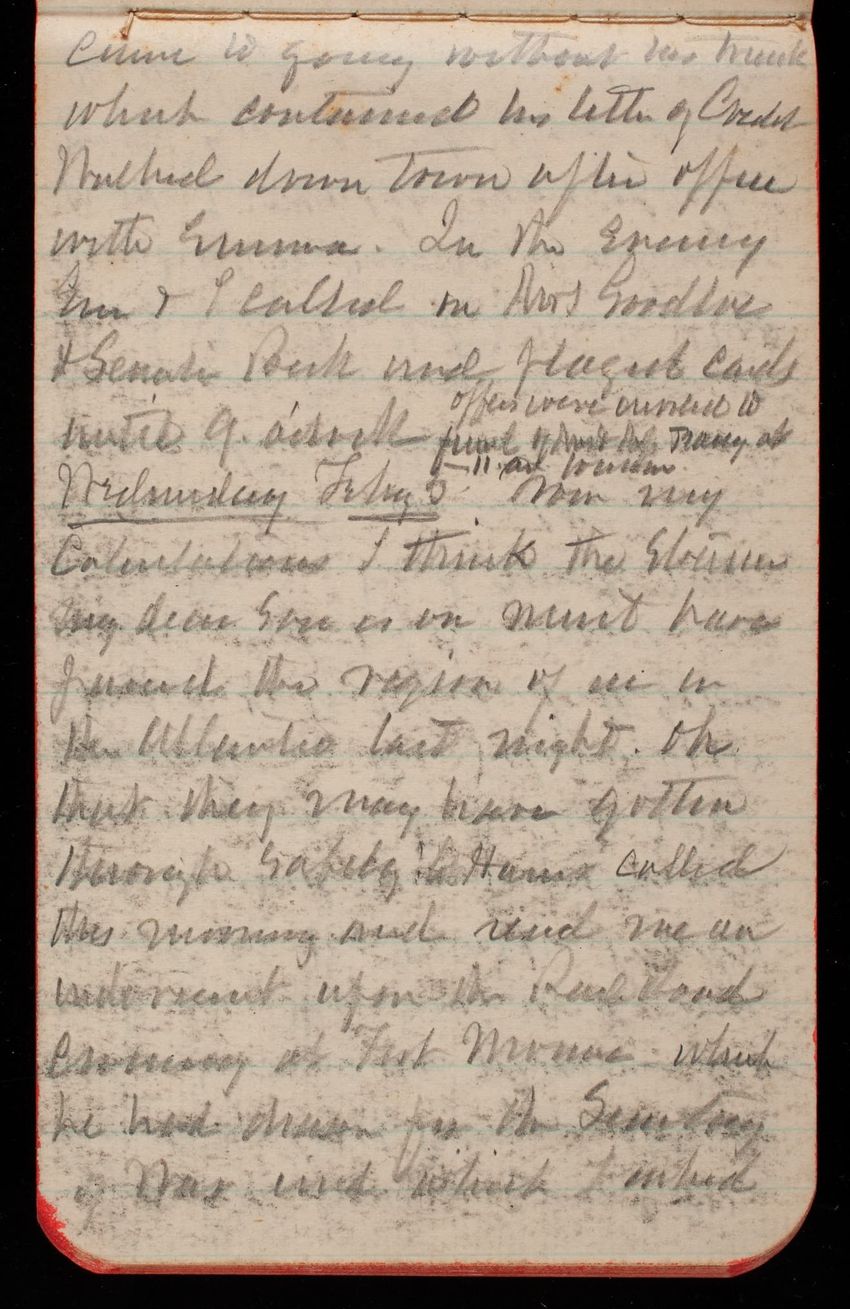 came to going without his trunk
which contained his letter of Credit
Walked down town after office
with Emma. In the Evening
Em & I called on Mrs Goodloe
& Senate Park and played cards
until 9. o'clock
offices were invited to
funeral of Mrs Tracy at
11. am
Wednesday Feby 5 From my
Calculations I think the Steamer
my dear Son is on must have
passed the region of ice in
the Atlantic last night. Oh
that they may have gotten
through safely! called
this morning and read me an
indorsement upon the Rail Road
crossing at Fort Monroe which
he had drawn for the Secretary
of War and which I asked